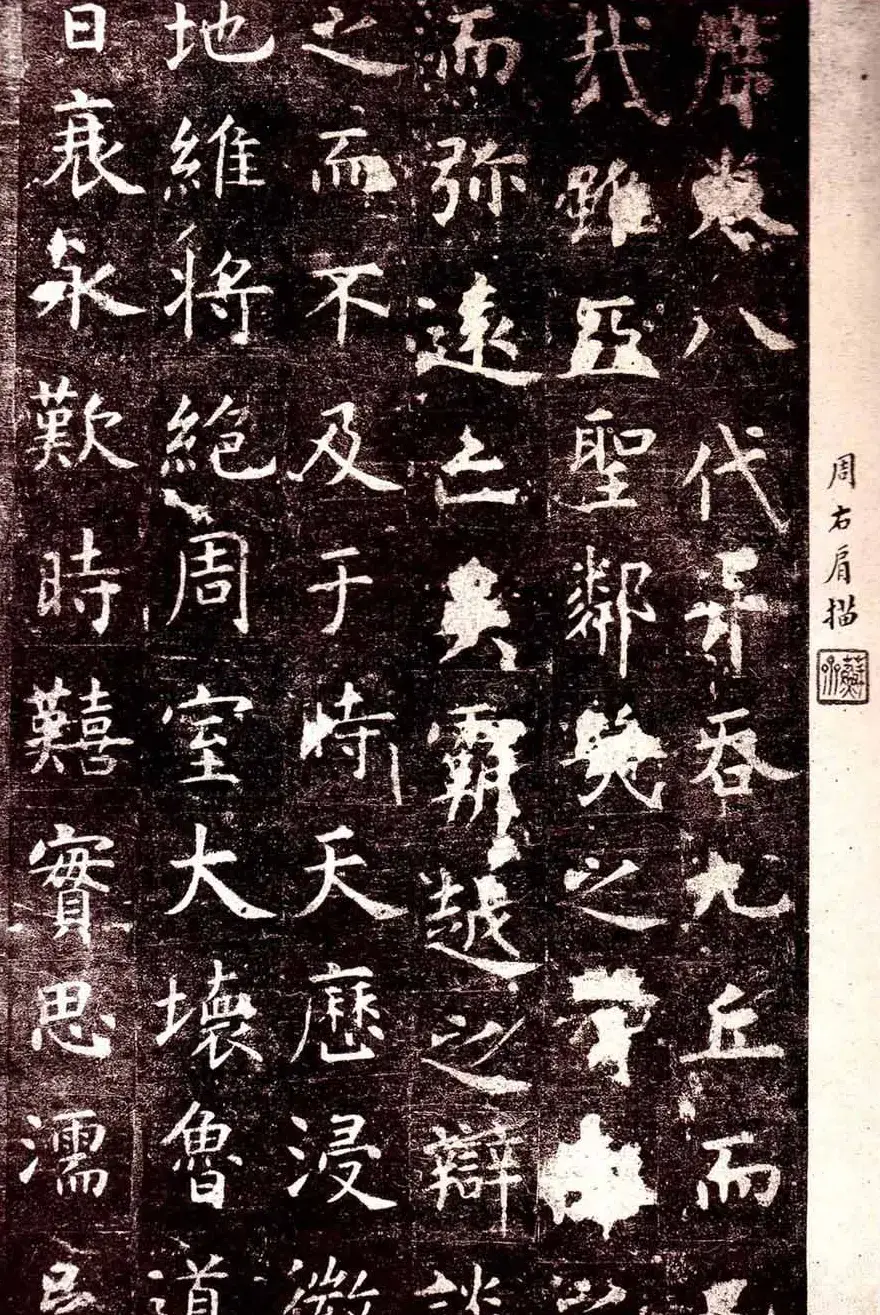 周右肩描
席卷八代并吞九丘而
哉雖亞聖鄰幾之
而弥遠亡吳霸越之辯談
之而不及于時天歷浸微
地維將絕周室大壞魯道
日衰永歎時囏實思濡